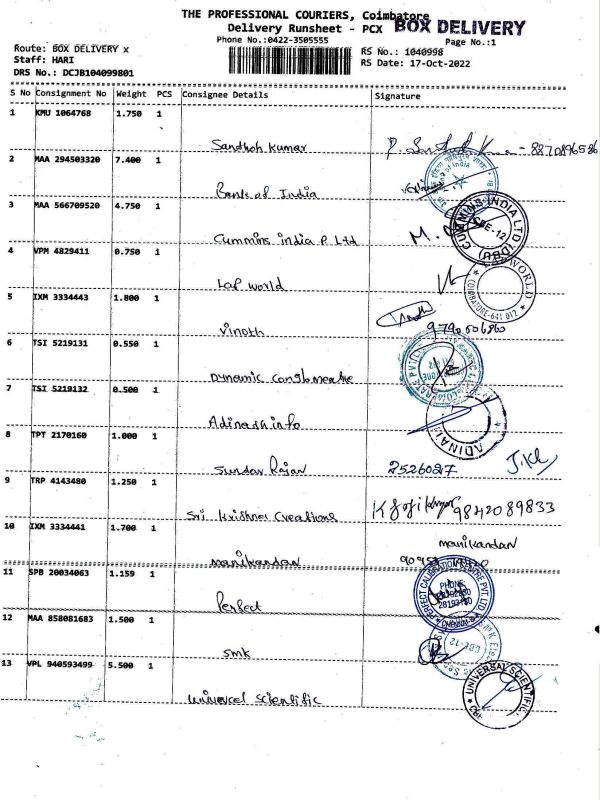 THE PROFESSIONAL COURIERS, Coimbatore
BOX DELIVERY
Delivery Runsheet - PCX
Phone No.:0422-3505555
Page No.:1
Route: BOX DELIVERY x
RS No.: 1040998
Staff: HARI
RS Date: 17-Oct-2022
DRS No.: DCJB104099801
S No Consignment No Weight PCS Consignee Details Signature
1 KMU 1064768 1.750 1
Sandhosh Kumar - 8870896586
2 MAA 294503320 7.400 1
Bank of India
3 MAA 566709520 4.750 1
Cummins india P Ltd CUMMINS INDIA LTD (DBU) CBE-12
4 VPM 4829411 0.750 1
Lap world COIMBATORE-641 012
5 IXM 3334443 1.800 1
Vinoth 9790606860
6 TSI 5219131 0.550 1
7 TSI 5219132 0.500 1
Adinash info ADINA
8 TPT 2170160 1.000 1
Sundar Rajan 2526027
9 TRP 4143480 1.250 1
Sri Krishna Creations 9842089833
10 IXM 3334441 1.700 1
manikandan
manikandan
11 SPB 20034063 1.159 1
Perfect PERFECT CALIBRATION CENTRE PVT. LTD PHONE CHENNAI
12 MAA 858081683 1.500 1
SMK CBE-12
13 VPL 940593499 5.500 1
Universal Scientific UNIVERSAL SCIENTIFIC